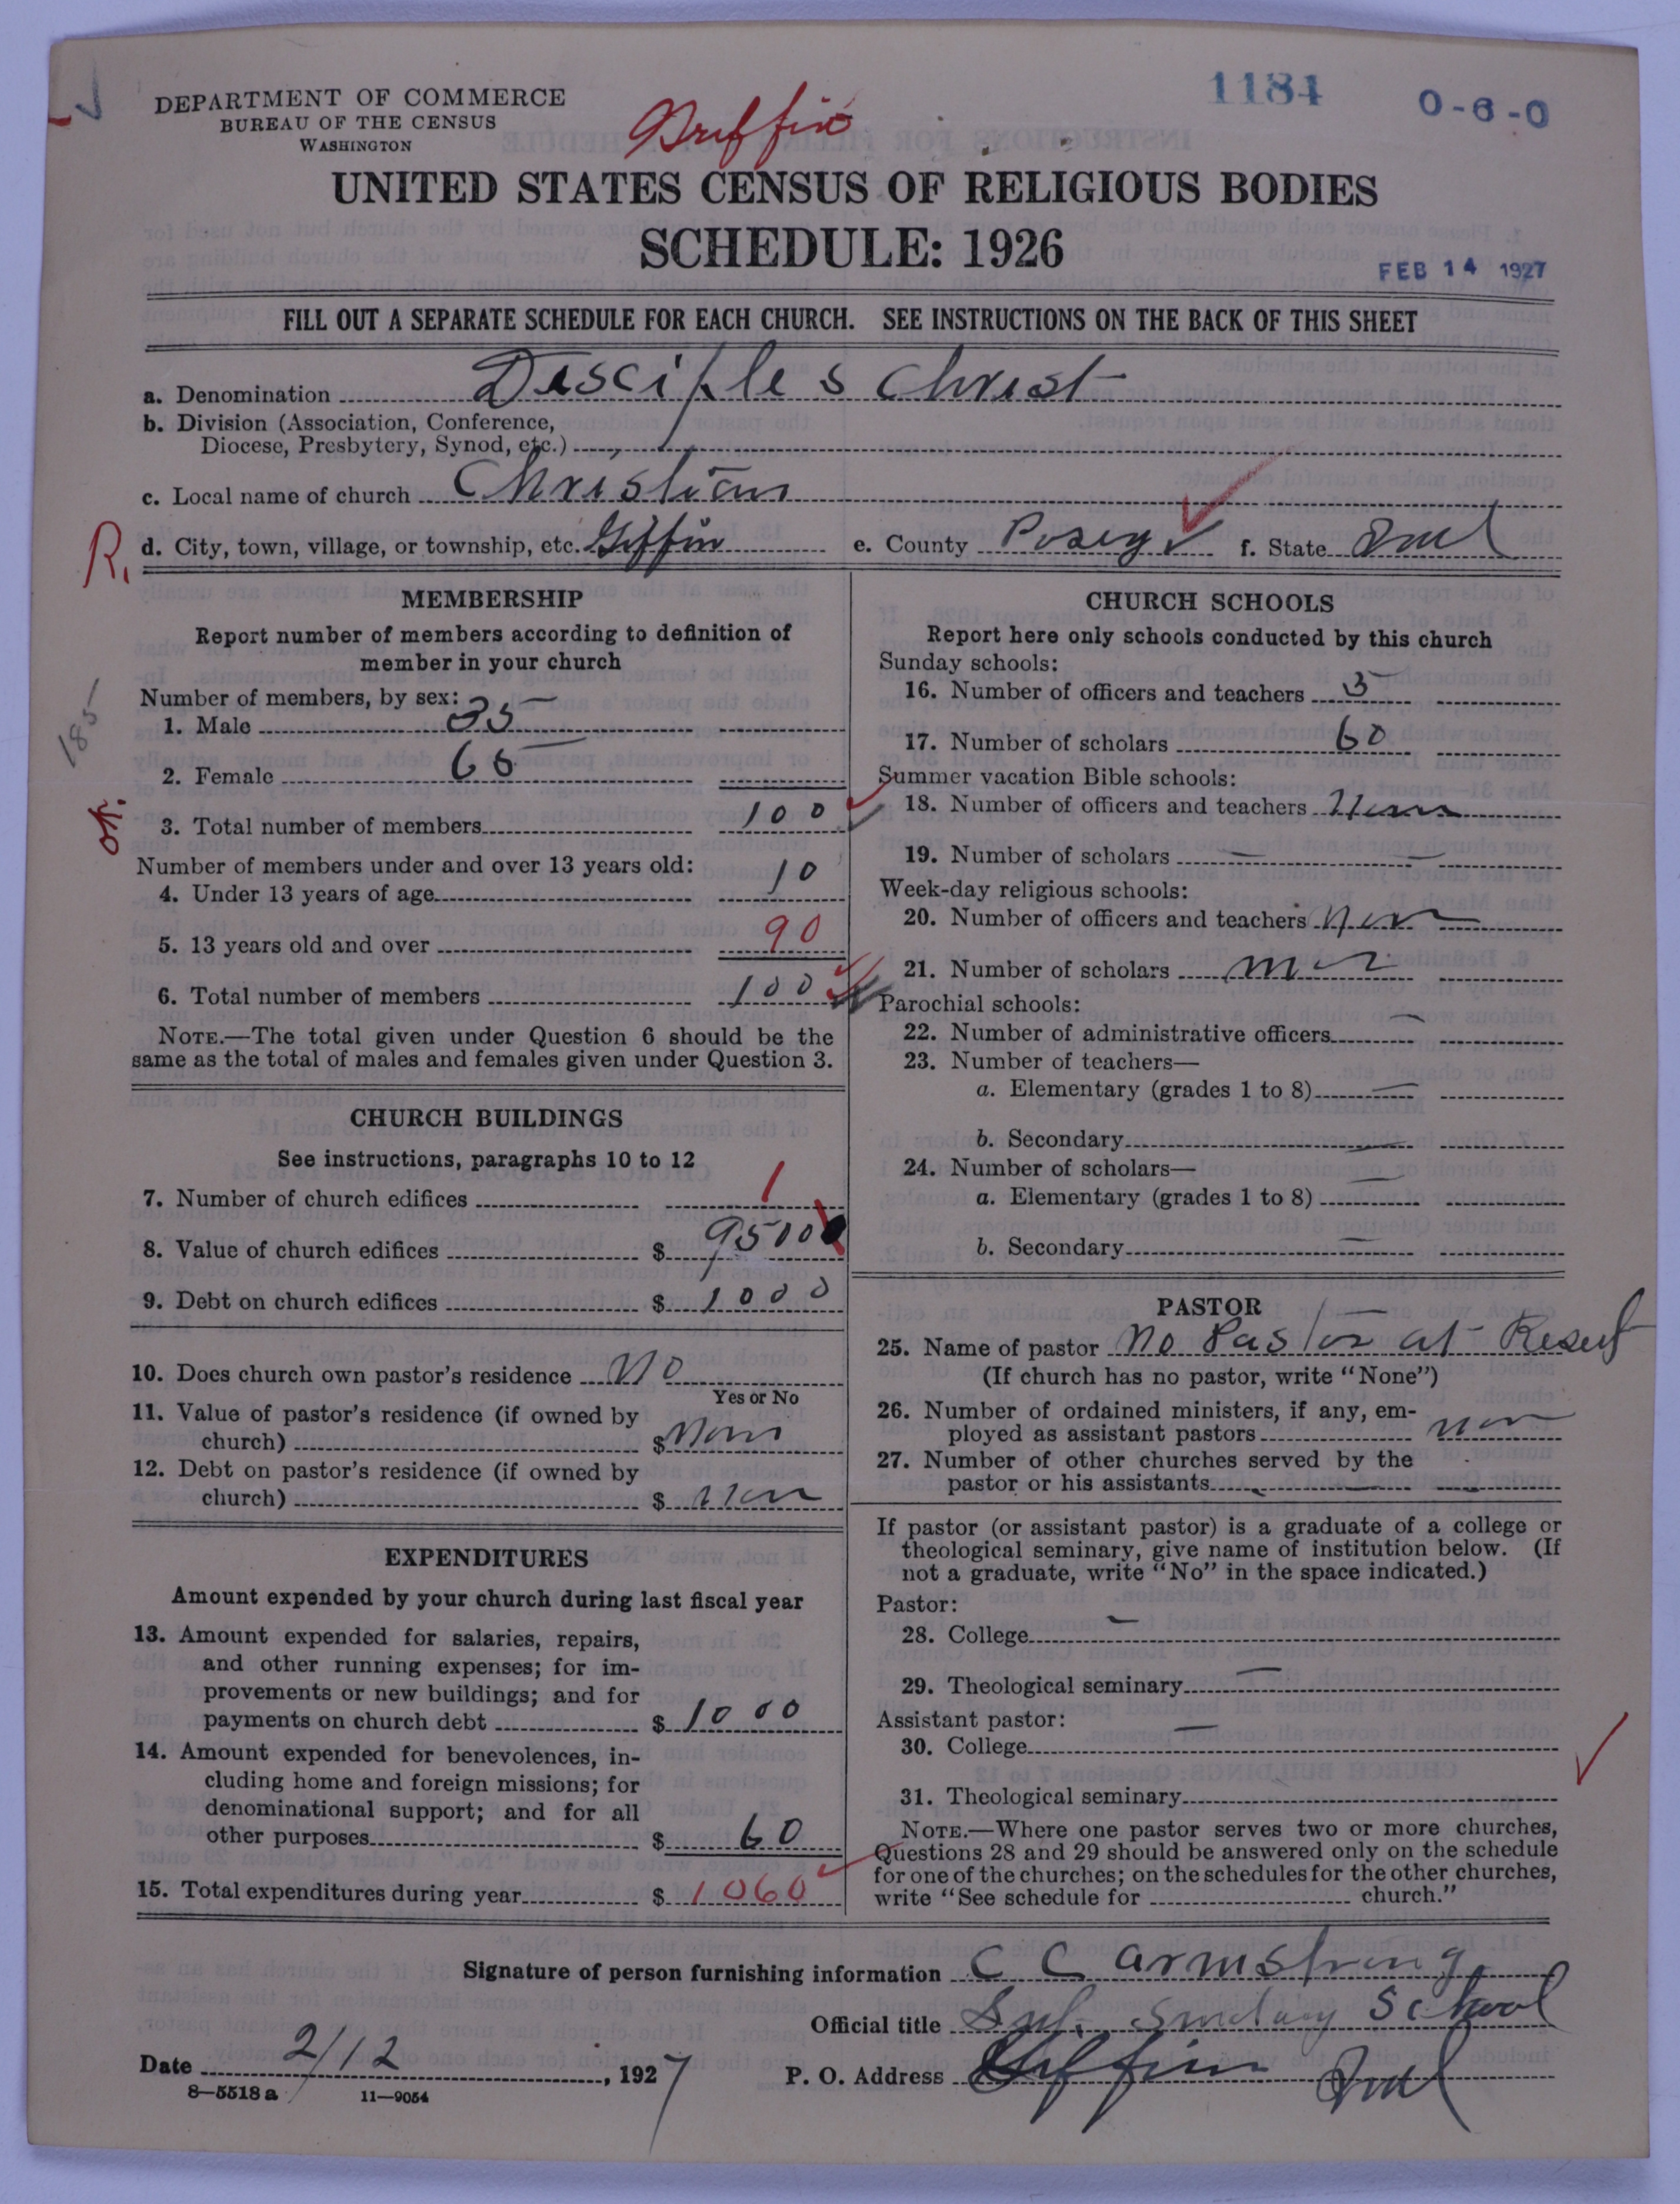 1184
0-6-0
DEPARTMENT OF COMMERCE
BUREAU OF THE CENSUS
WASHINGTON
Griffin
UNITED STATES CENSUS OF RELIGIOUS BODIES
SCHEDULE: 1926
FEB 14 1927
FILL OUT A SEPARATE SCHEDULE FOR EACH CHURCH. SEE INSTRUCTIONS ON THE BACK OF THIS SHEET
a. Denomination Disciples Christ
b. Division (Association, Conference,
Diocese, Presbytery, Synod, etc.)
c. Local name of church Christian
R. d. City, town, village, or township, etc. Giffin e. County Posey f. State Ind
MEMBERSHIP
Report number of members according to definition of
member in your church
Number of members, by sex:
185
1. Male 35
2. Female 65
OK.
3. Total number of members 100
Number of members under and over 13 years old:
4. Under 13 years of age 10
5. 13 years old and over 90
6. Total number of members 100
NOTE.—The total given under Question 6 should be the
same as the total of males and females given under Question 3.
CHURCH BUILDINGS
See instructions, paragraphs 10 to 12
7. Number of church edifices 1
8. Value of church edifices $ 9500
9. Debt on church edifices $ 1000
10. Does church own pastor's residence No
Yes or No
11. Value of pastor's residence (if owned by
church) $ None
12. Debt on pastor's residence (if owned by
church) $ Non
EXPENDITURES
Amount expended by your church during last fiscal year
13. Amount expended for salaries, repairs,
and other running expenses; for im-
provements or new buildings; and for
payments on church debt $ 1000
14. Amount expended for benevolences, in-
cluding home and foreign missions; for
denominational support; and for all
other purposes $ 60
15. Total expenditures during year $ 1060
CHURCH SCHOOLS
Report here only schools conducted by this church
Sunday schools:
16. Number of officers and teachers 5
17. Number of scholars 60
Summer vacation Bible schools:
18. Number of officers and teachers Non
19. Number of scholars —
Week-day religious schools:
20. Number of officers and teachers Non
21. Number of scholars non
Parochial schools:
22. Number of administrative officers —
23. Number of teachers—
a. Elementary (grades 1 to 8) —
b. Secondary —
24. Number of scholars—
a. Elementary (grades 1 to 8) —
b. Secondary —
PASTOR
25. Name of pastor No Pastor at Present
(If church has no pastor, write "None")
26. Number of ordained ministers, if any, em-
ployed as assistant pastors non
27. Number of other churches served by the
pastor or his assistants —
If pastor (or assistant pastor) is a graduate of a college or
theological seminary, give name of institution below. (If
not a graduate, write "No" in the space indicated.)
Pastor:
28. College —
29. Theological seminary —
Assistant pastor:
30. College —
31. Theological seminary
NOTE.—Where one pastor serves two or more churches,
Questions 28 and 29 should be answered only on the schedule
for one of the churches; on the schedules for the other churches,
write "See schedule for church."
Signature of person furnishing information C C Armstrong
Official title Supt. Sunday School
Date 2/12, 1927 P. O. Address Griffin Ind
8—5518 a 11—9054